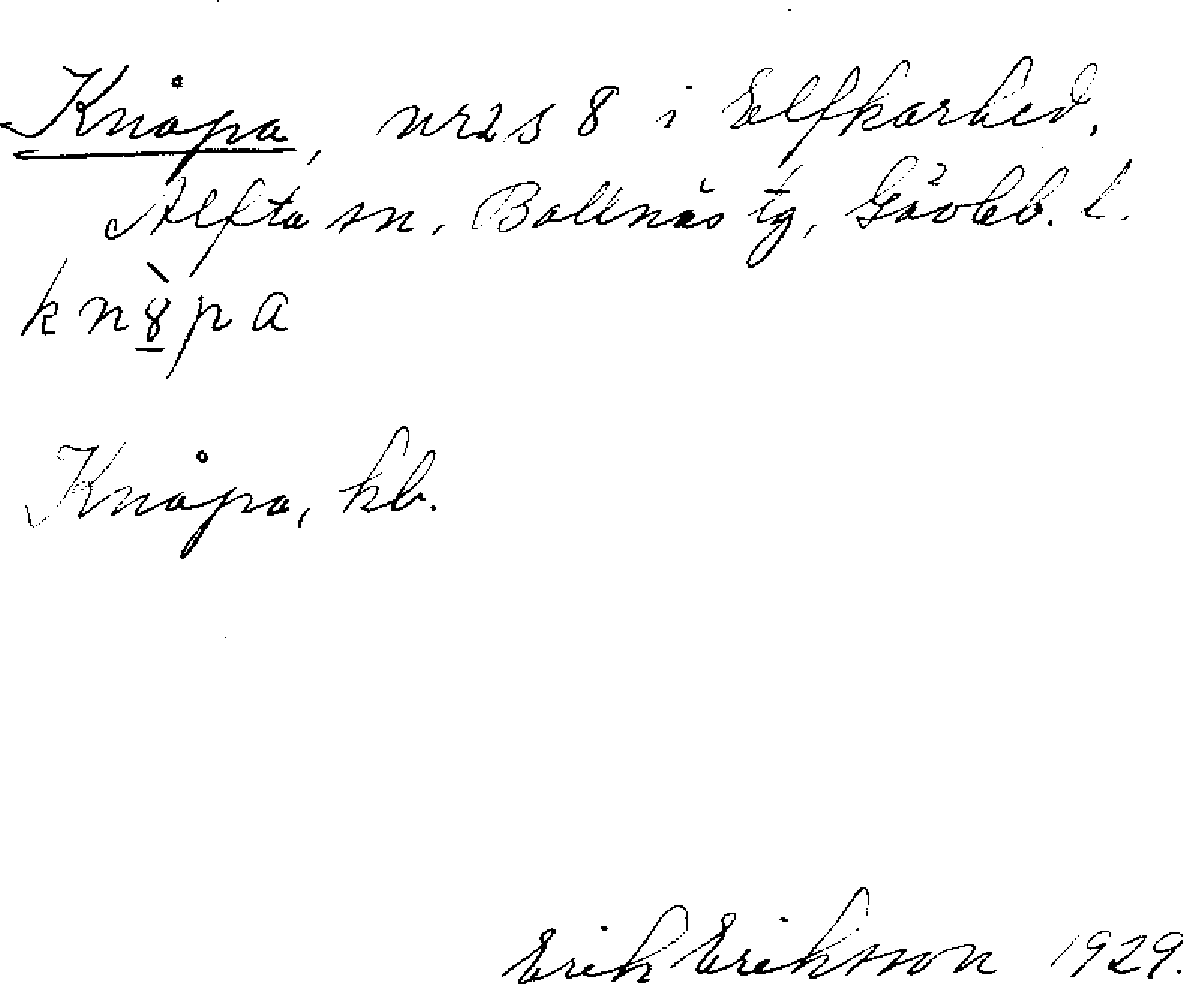 Knåpa, nr 2 s 8 i Elfkarhed,
Alfta sn, Bollnäs tg, Gävleb. l.
kn8̱̀pa
Knåpa, kb.
Erik Eriksson 1929.